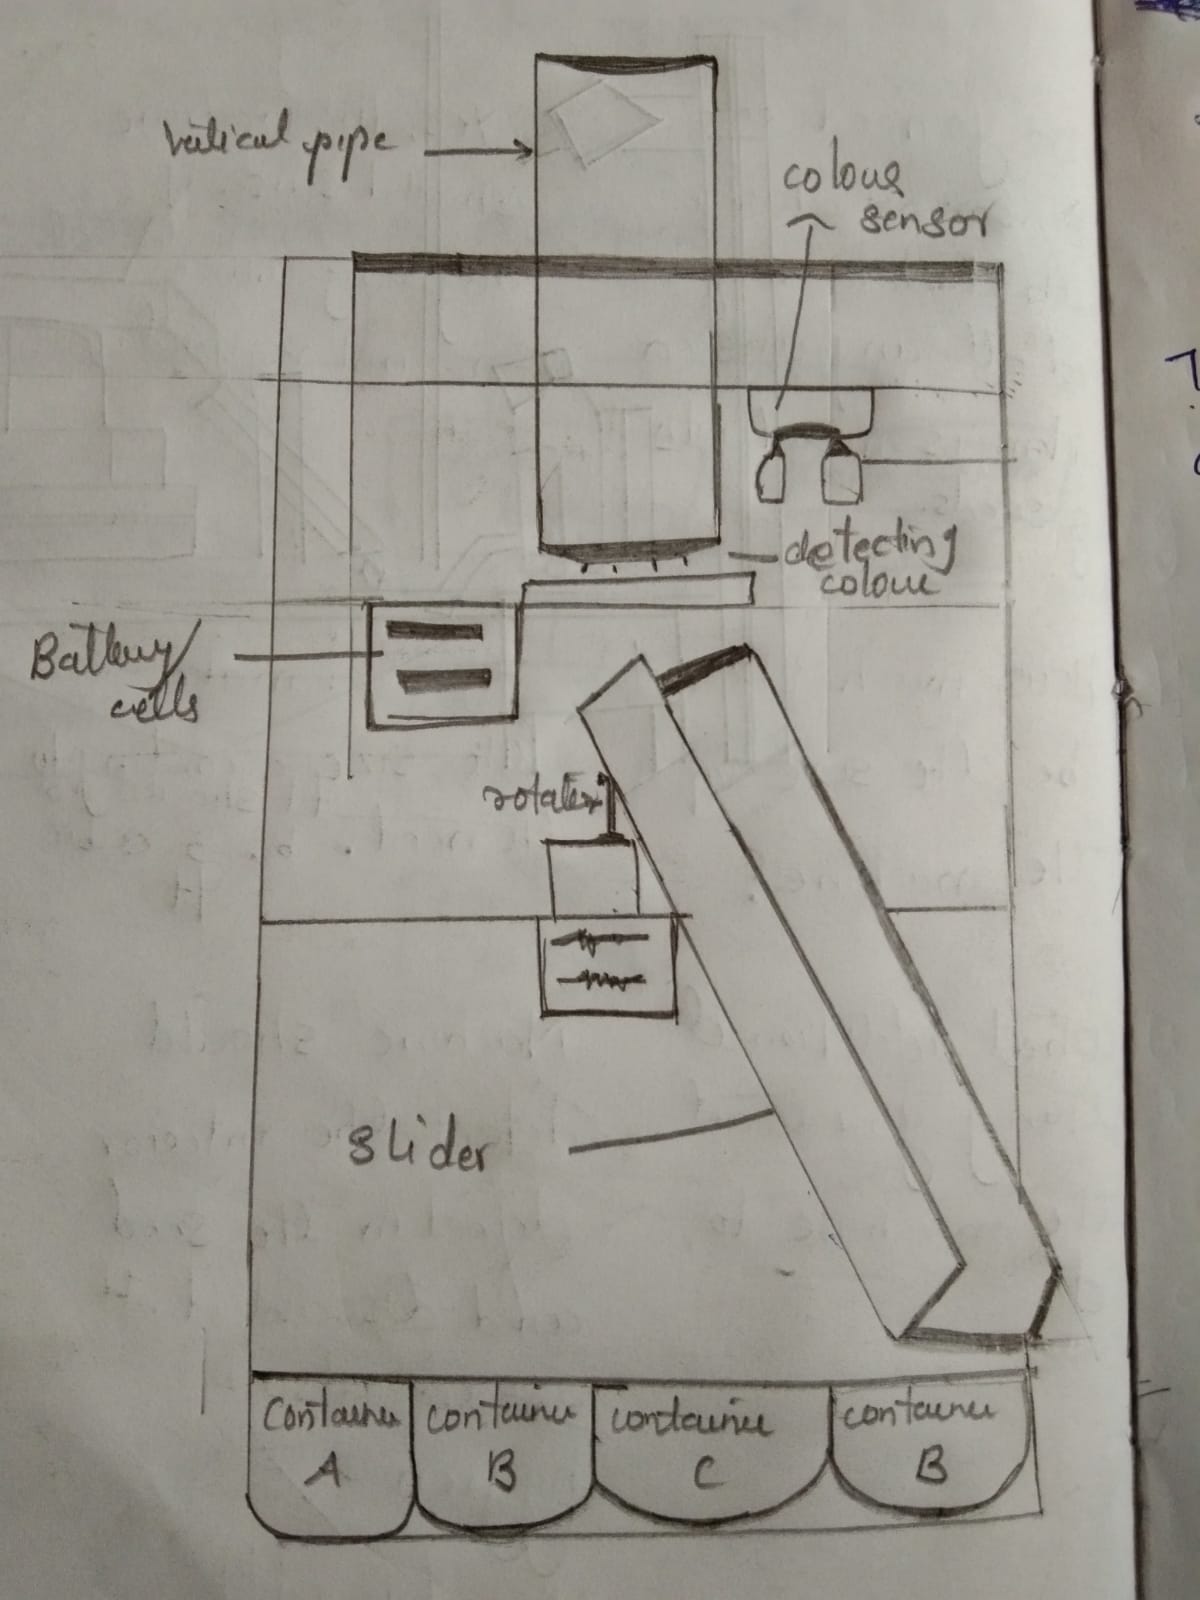 vertical pipe
colour
sensor
detecting
colour
Battery
cells
rotater
slider
container
A
container
B
container
C
container
B